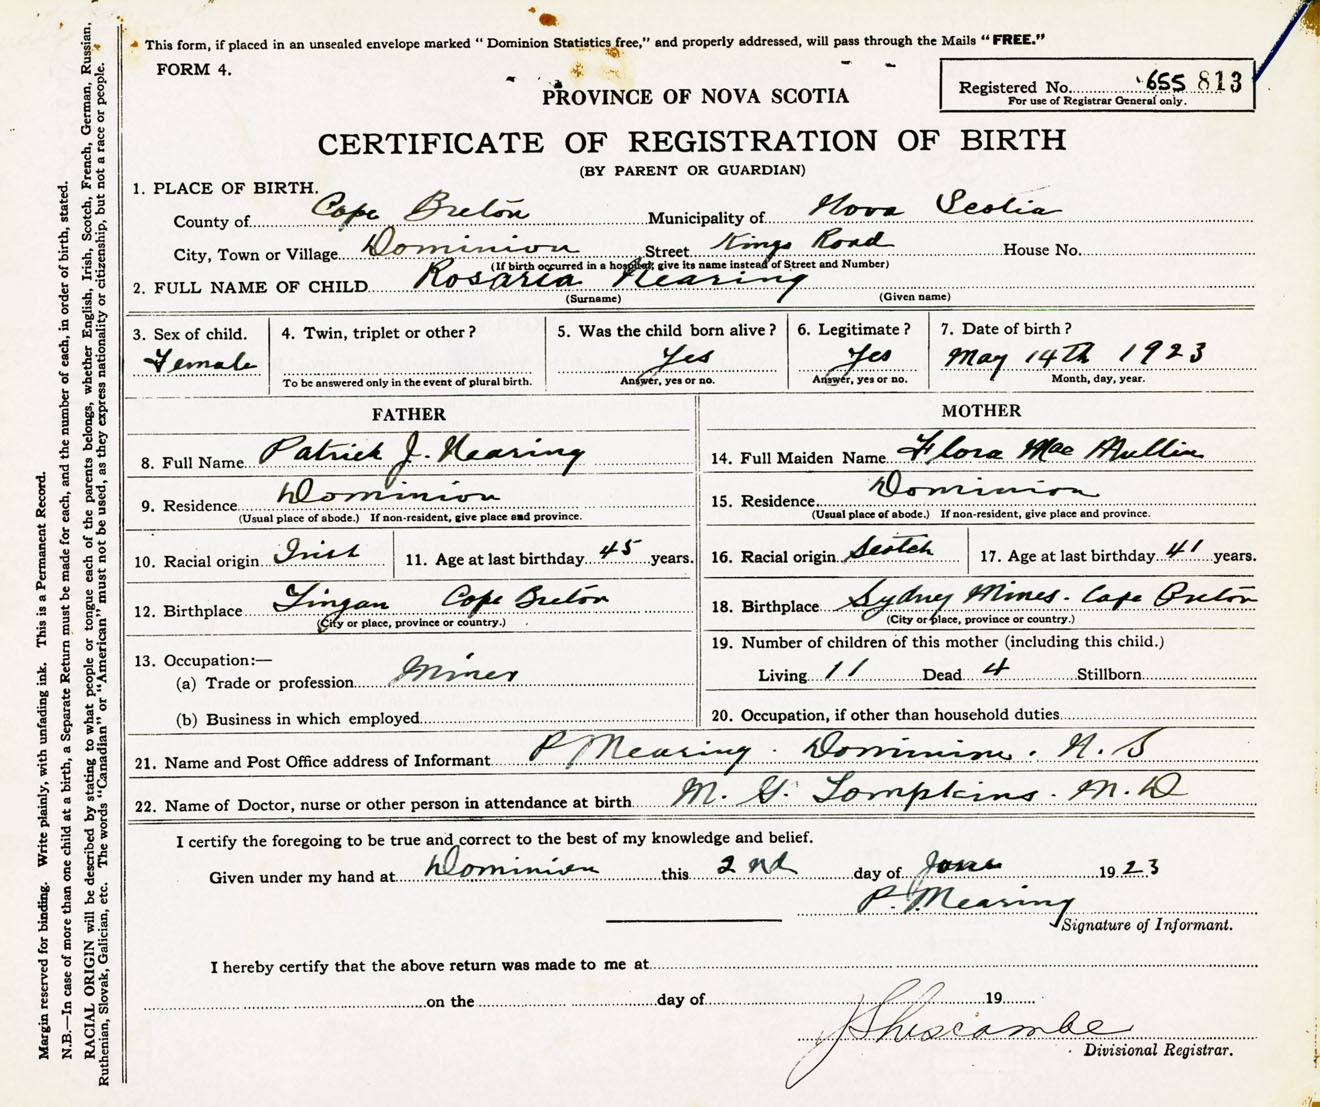 This form, if placed in an unsealed envelope marked "Dominion Statistics free," and properly addressed, will pass through the Mails "FREE."
FORM 4.
Registered No. 655 813
For use of Registrar General only.
PROVINCE OF NOVA SCOTIA
CERTIFICATE OF REGISTRATION OF BIRTH
(BY PARENT OR GUARDIAN)
1. PLACE OF BIRTH.
County of Cape Breton Municipality of Nova Scotia
City, Town or Village Dominion Street Kings Road House No.
(If birth occurred in a hospital; give its name instead of Street and Number)
2. FULL NAME OF CHILD Rosaria Nearing
(Surname) (Given name)
3. Sex of child. 4. Twin, triplet or other? 5. Was the child born alive? 6. Legitimate? 7. Date of birth?
Female Yes Yes May 14th 1923
To be answered only in the event of plural birth. Answer, yes or no. Answer, yes or no. Month, day, year.
FATHER MOTHER
8. Full Name Patrick J. Nearing 14. Full Maiden Name Flora Mac Mullin
9. Residence Dominion 15. Residence Dominion
(Usual place of abode.) If non-resident, give place and province. (Usual place of abode.) If non-resident, give place and province.
10. Racial origin Irish 11. Age at last birthday 45 years. 16. Racial origin Scotch 17. Age at last birthday 41 years.
12. Birthplace Lingan Cape Breton 18. Birthplace Sydney Mines. Cape Breton
(City or place, province or country.) (City or place, province or country.)
13. Occupation:— 19. Number of children of this mother (including this child.)
(a) Trade or profession Miner Living 11 Dead 4 Stillborn
(b) Business in which employed 20. Occupation, if other than household duties
21. Name and Post Office address of Informant P Nearing. Dominion. N. S
22. Name of Doctor, nurse or other person in attendance at birth M. G. Tompkins. M. D
I certify the foregoing to be true and correct to the best of my knowledge and belief.
Given under my hand at Dominion this 2nd day of June 1923
P. Nearing
Signature of Informant.
I hereby certify that the above return was made to me at
on the day of 19
Divisional Registrar.
Margin reserved for binding. Write plainly, with unfading ink. This is a Permanent Record.
N.B.—In case of more than one child at a birth, a Separate Return must be made for each, and the number of each, in order of birth, stated.
RACIAL ORIGIN will be described by stating to what people or tongue each of the parents belongs, whether English, Irish, Scotch, French, German, Russian,
Ruthenian, Slovak, Galician, etc. The words "Canadian" or "American" must not be used, as they express nationality or citizenship, but not a race or people.